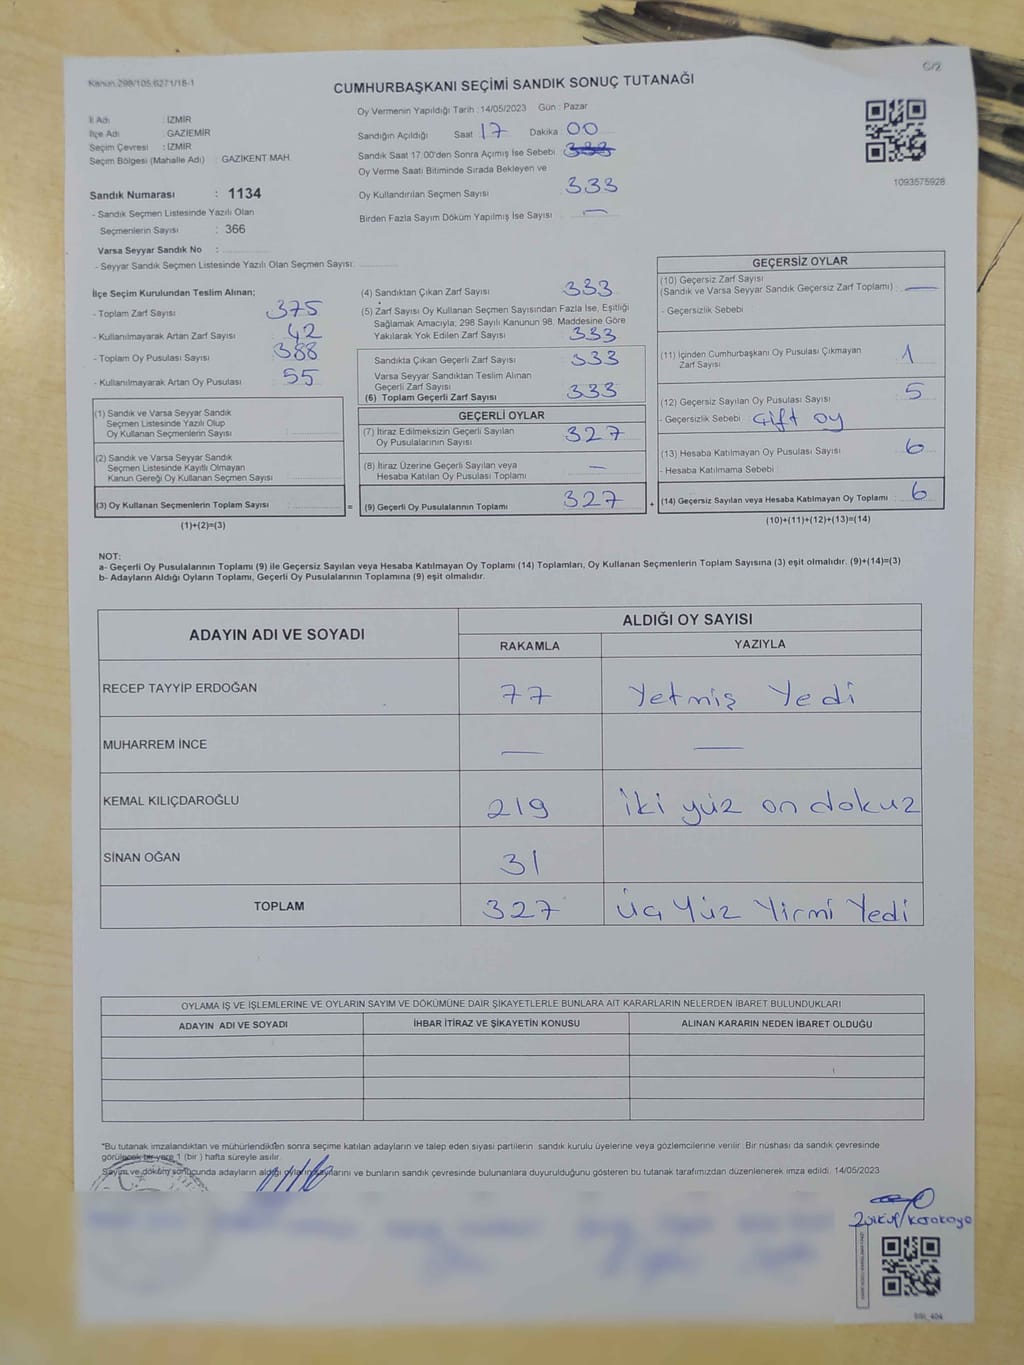 Kanun 298/105,6271/18-1
C/2
CUMHURBAŞKANI SEÇİMİ SANDIK SONUÇ TUTANAĞI
İl Adı : İZMİR
İlçe Adı : GAZİEMİR
Seçim Çevresi : İZMİR
Seçim Bölgesi (Mahalle Adı) : GAZİKENT MAH.
Sandık Numarası : 1134
- Sandık Seçmen Listesinde Yazılı Olan
Seçmenlerin Sayısı : 366
Varsa Seyyar Sandık No :
- Seyyar Sandık Seçmen Listesinde Yazılı Olan Seçmen Sayısı:
Oy Vermenin Yapıldığı Tarih : 14/05/2023 Gün : Pazar
Sandığın Açıldığı Saat 17 Dakika 00
Sandık Saat 17:00'den Sonra Açımış İse Sebebi 333
Oy Verme Saati Bitiminde Sırada Bekleyen ve
Oy Kullandırılan Seçmen Sayısı 333
Birden Fazla Sayım Döküm Yapılmış İse Sayısı —
1093575928
İlçe Seçim Kurulundan Teslim Alınan;
- Toplam Zarf Sayısı 375
- Kullanılmayarak Artan Zarf Sayısı 42
- Toplam Oy Pusulası Sayısı 388
- Kullanılmayarak Artan Oy Pusulası 55
(1) Sandık ve Varsa Seyyar Sandık
Seçmen Listesinde Yazılı Olup
Oy Kullanan Seçmenlerin Sayısı
(2) Sandık ve Varsa Seyyar Sandık
Seçmen Listesinde Kayıtlı Olmayan
Kanun Gereği Oy Kullanan Seçmen Sayısı
(3) Oy Kullanan Seçmenlerin Toplam Sayısı =
(1)+(2)=(3)
(4) Sandıktan Çıkan Zarf Sayısı 333
(5) Zarf Sayısı Oy Kullanan Seçmen Sayısından Fazla İse, Eşitliği
Sağlamak Amacıyla; 298 Sayılı Kanunun 98. Maddesine Göre
Yakılarak Yok Edilen Zarf Sayısı : 333
Sandıkta Çıkan Geçerli Zarf Sayısı 333
Varsa Seyyar Sandıktan Teslim Alınan
Geçerli Zarf Sayısı
(6) Toplam Geçerli Zarf Sayısı 333
GEÇERLİ OYLAR
(7) İtiraz Edilmeksizin Geçerli Sayılan
Oy Pusulalarının Sayısı 327
(8) İtiraz Üzerine Geçerli Sayılan veya
Hesaba Katılan Oy Pusulası Toplamı —
(9) Geçerli Oy Pusulalarının Toplamı 327 +
GEÇERSİZ OYLAR
(10) Geçersiz Zarf Sayısı
(Sandık ve Varsa Seyyar Sandık Geçersiz Zarf Toplamı) : —
- Geçersizlik Sebebi
(11) İçinden Cumhurbaşkanı Oy Pusulası Çıkmayan
Zarf Sayısı 1
(12) Geçersiz Sayılan Oy Pusulası Sayısı 5
- Geçersizlik Sebebi : Çift oy
(13) Hesaba Katılmayan Oy Pusulası Sayısı 6
- Hesaba Katılmama Sebebi
(14) Geçersiz Sayılan veya Hesaba Katılmayan Oy Toplamı : 6
(10)+(11)+(12)+(13)=(14)
NOT:
a- Geçerli Oy Pusulalarının Toplamı (9) ile Geçersiz Sayılan veya Hesaba Katılmayan Oy Toplamı (14) Toplamları, Oy Kullanan Seçmenlerin Toplam Sayısına (3) eşit olmalıdır. (9)+(14)=(3)
b- Adayların Aldığı Oyların Toplamı, Geçerli Oy Pusulalarının Toplamına (9) eşit olmalıdır.
ADAYIN ADI VE SOYADI
ALDIĞI OY SAYISI
RAKAMLA YAZIYLA
RECEP TAYYİP ERDOĞAN 77 Yetmiş Yedi
MUHARREM İNCE — —
KEMAL KILIÇDAROĞLU 219 iki yüz on dokuz
SİNAN OĞAN 31
TOPLAM 327 Üç Yüz Yirmi Yedi
OYLAMA İŞ VE İŞLEMLERİNE VE OYLARIN SAYIM VE DÖKÜMÜNE DAİR ŞİKAYETLERLE BUNLARA AİT KARARLARIN NELERDEN İBARET BULUNDUKLARI
ADAYIN ADI VE SOYADI İHBAR İTİRAZ VE ŞİKAYETİN KONUSU ALINAN KARARIN NEDEN İBARET OLDUĞU
*Bu tutanak imzalandıktan ve mühürlendikten sonra seçime katılan adayların ve talep eden siyasi partilerin sandık kurulu üyelerine veya gözlemcilerine verilir. Bir nüshası da sandık çevresinde
görülecek bir yere 1 (bir ) hafta süreyle asılır.
Sayım ve döküm sonucunda adayların aldığı oyların sayılarını ve bunların sandık çevresinde bulunanlara duyurulduğunu gösteren bu tutanak tarafımızdan düzenlenerek imza edildi. 14/05/2023